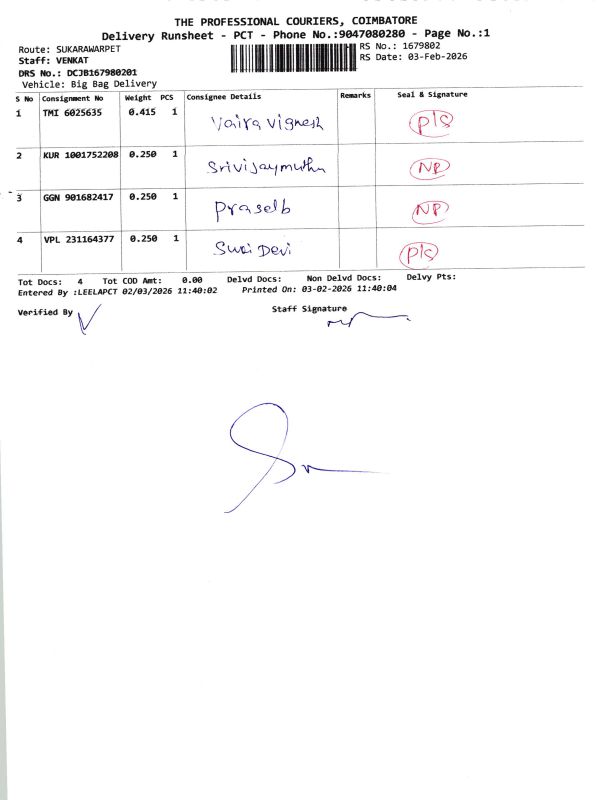 THE PROFESSIONAL COURIERS, COIMBATORE
Delivery Runsheet - PCT - Phone No.:9047080280 - Page No.:1
Route: SUKARAWARPET RS No.: 1679802
Staff: VENKAT RS Date: 03-Feb-2026
DRS No.: DCJB167980201
Vehicle: Big Bag Delivery
S No Consignment No Weight PCS Consignee Details Remarks Seal & Signature
1 TMI 6025635 0.415 1 Vaira Vignesh P/S
2 KUR 1001752208 0.250 1 Srivijaymuthu NP
3 GGN 901682417 0.250 1 NP
4 VPL 231164377 0.250 1 Devi P/S
Tot Docs: 4 Tot COD Amt: 0.00 Delvd Docs: Non Delvd Docs: Delvy Pts:
Entered By :LEELAPCT 02/03/2026 11:40:02 Printed On: 03-02-2026 11:40:04
Verified By Staff Signature